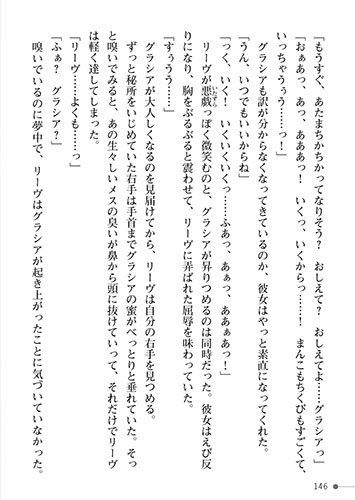 「もうすぐ、あたまちかちかってなりそう？　おしえて？　おしえてよ……グラシアっ」
「おぁあっ、あっ、あああっ！　いくっ、いくから……っ！　まんこもちくびもすごくて、
いっちゃうぅう……っ！」
グラシアも訳が分からなくなってきているのか、彼女はやっと素直になってくれた。
「うん、いつでもいいからね」
「っく、いく！　いくいくいくっ……ふあっ、あぁっ、ああぁあっ！」
リーヴが悪戯っぽく微笑むのと、グラシアが昇りつめるのは同時だった。彼女はえび反
りになり、胸をぶるぶると震わせて、リーヴに弄ばれた屈辱を味わっていた。
「すぅうう……」
グラシアが大人しくなるのを見届けてから、リーヴは自分の右手を見つめる。
ずっと秘所をいじめていた右手は手首までグラシアの蜜がべっとりと垂れていた。そっ
と嗅いでみると、あの生々しいメスの臭いが鼻から頭に抜けていって、それだけでリーヴ
は軽く達してしまった。
「リーヴ……よくも……っ」
「ふぁ？　グラシア？」
嗅いでいるのに夢中で、リーヴはグラシアが起き上がったことに気づいていなかった。
146